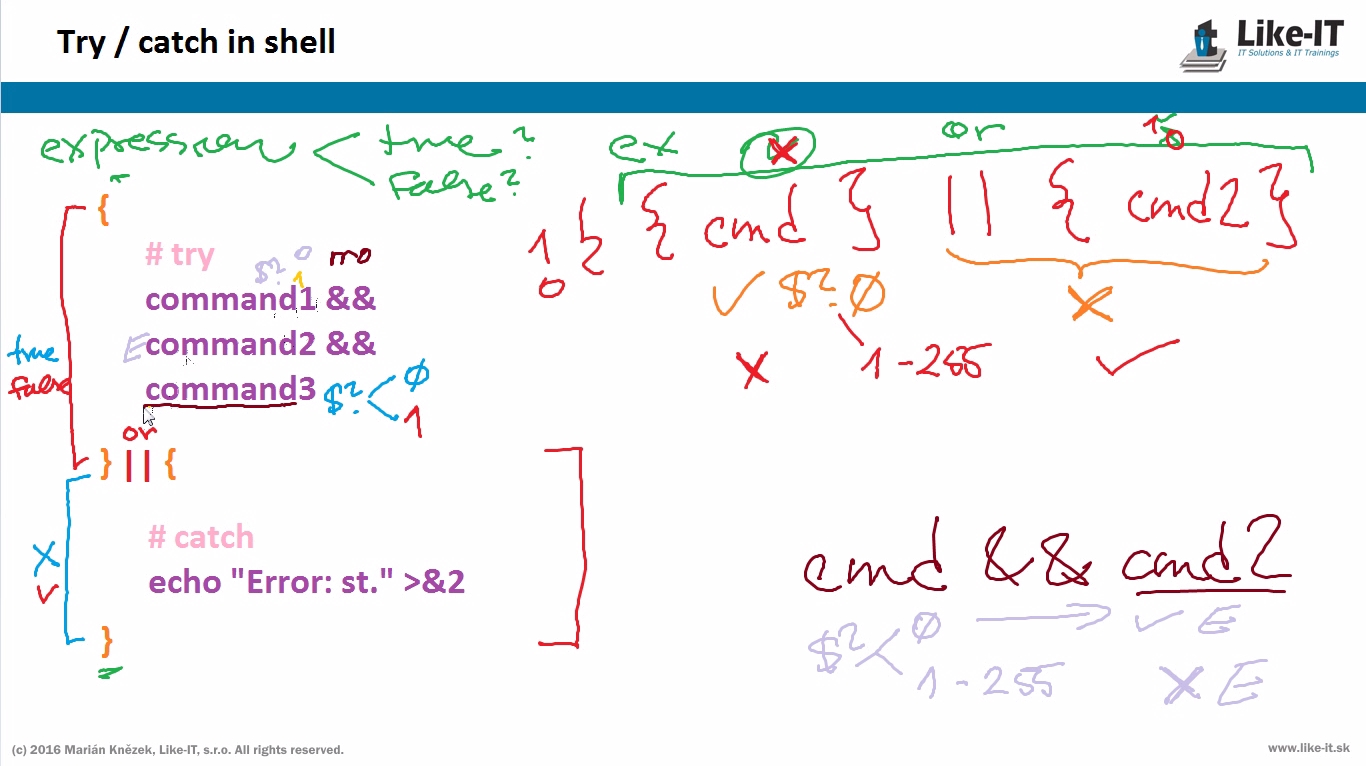 Try / catch in shell
Like-IT
IT Solutions & IT Trainings
expression < true?
false?
ex or
1 0
{
# try
$? 0 no
1
command1 &&
E command2 &&
command3 $? < Ø
1
true
false
or
} || {
# catch
echo "Error: st." >&2
X
✓
}
1 { { cmd } || { cmd2 }
0
✓ $? Ø X
X 1-255 ✓
cmd && cmd2
$? < Ø → ✓ E
1-255 X E
(c) 2016 Marián Knězek, Like-IT, s.r.o. All rights reserved.
www.like-it.sk